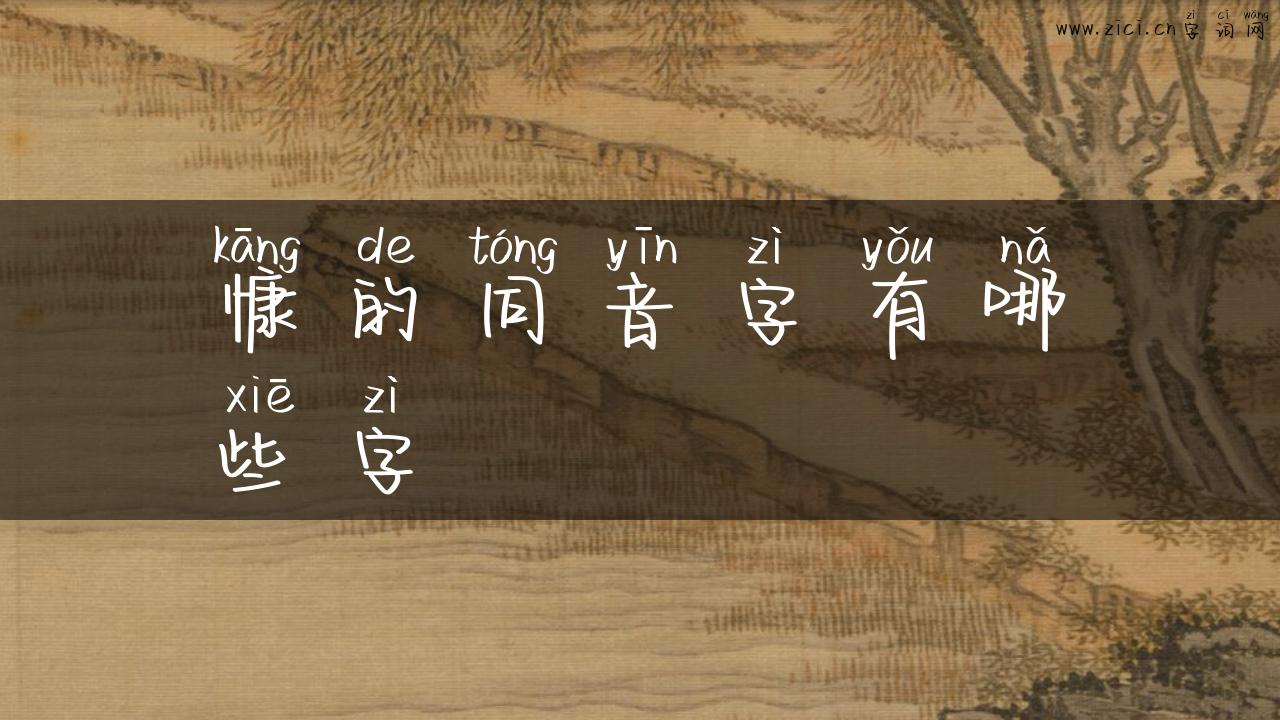 zì cí wǎng
www.zici.cn字词网
kāng de tóng yīn zì yǒu nǎ
慷的同音字有哪
xiē zì
些字